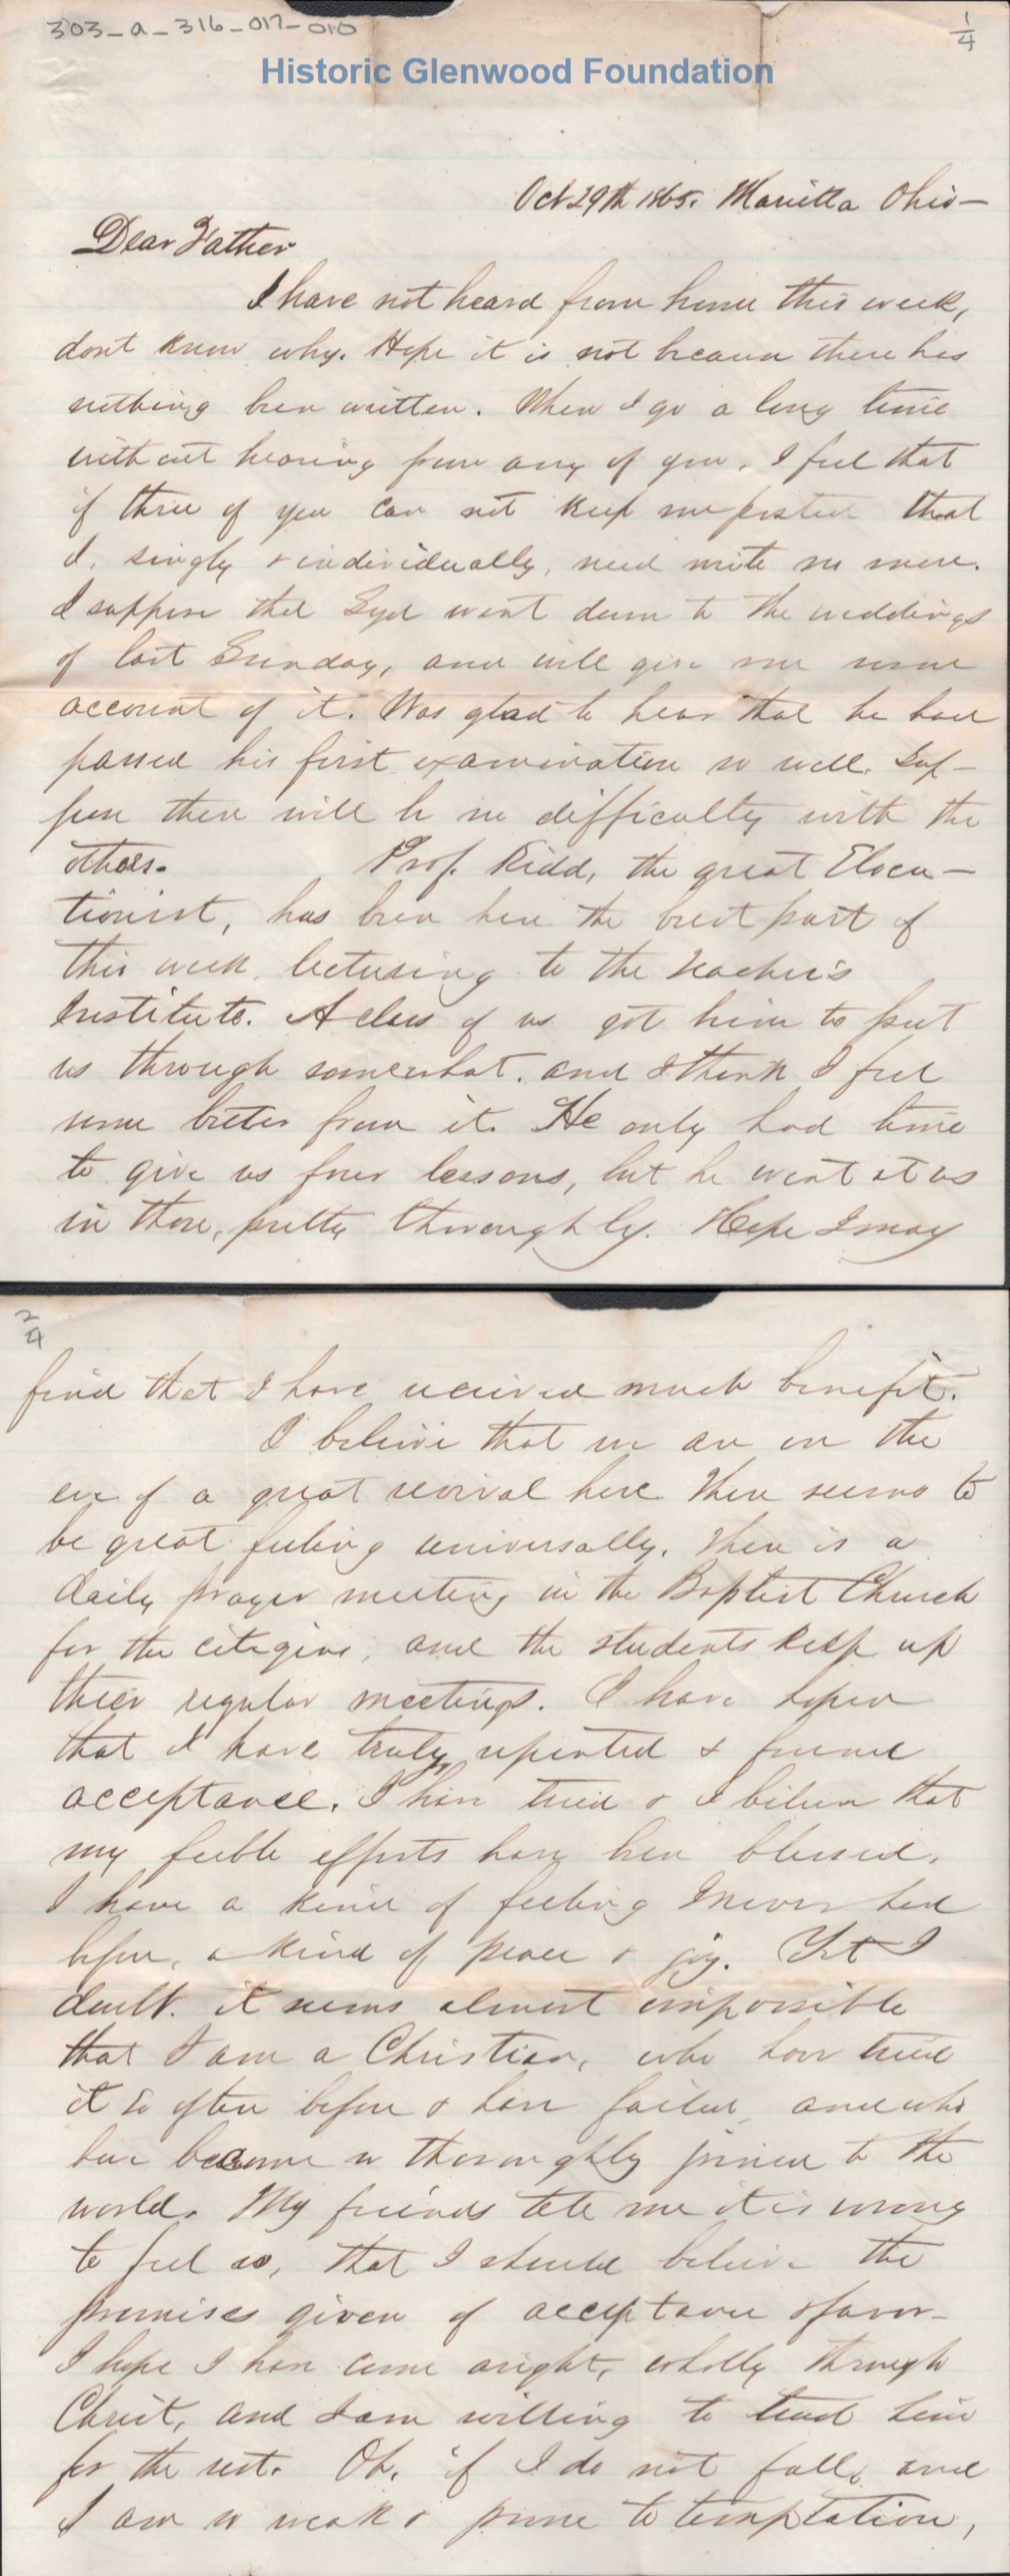 303-a-316-017-010
1/4
Historic Glenwood Foundation
Oct 29th 1865. Marietta Ohio—
Dear Father
I have not heard from home this week,
dont know why. Hope it is not because there has
nothing been written. When I go a long time
without hearing from any of you, I feel that
if three of you can not keep me posted that
I, singly & individually, need write no more.
I suppose that Syd went down to the weddings
of last Sunday, and will give me some
account of it. Was glad to hear that he had
passed his first examination so well. Sup-
pose there will be no difficulty with the
others. Prof. Kidd, the great Elocu-
tionist, has been here the best part of
this week, lecturing to the Teacher's
Institute. A class of us got him to put
us through somewhat. and I think I feel
some better from it. He only had time
to give us four lessons, but he went at us
in those, pretty thoroughly. Hope I may
2/4
find that I have received much benefit.
I believe that we are on the
eve of a great revival here There seems to
be great feeling universally. There is a
daily prayer meeting in the Baptist Church
for the citizens, and the students keep up
their regular meetings. I have hopes
that I have truly repented & found
acceptance. I have tried & I believe that
my feeble efforts have been blessed.
I have a kind of feeling I never had
before, a kind of peace & joy. Yet I
doubt. it seems almost impossible
that I am a Christian, who have tried
it so often before & have failed, and who
have become so thoroughly joined to the
world. My friends tell me it is wrong
to feel so, that I should believe the
promises given of acceptance & favor—
I hope I have come aright, wholly through
Christ, and I am willing to trust him
for the rest. Oh, if I do not fall, and
I am so weak & prone to temptation,